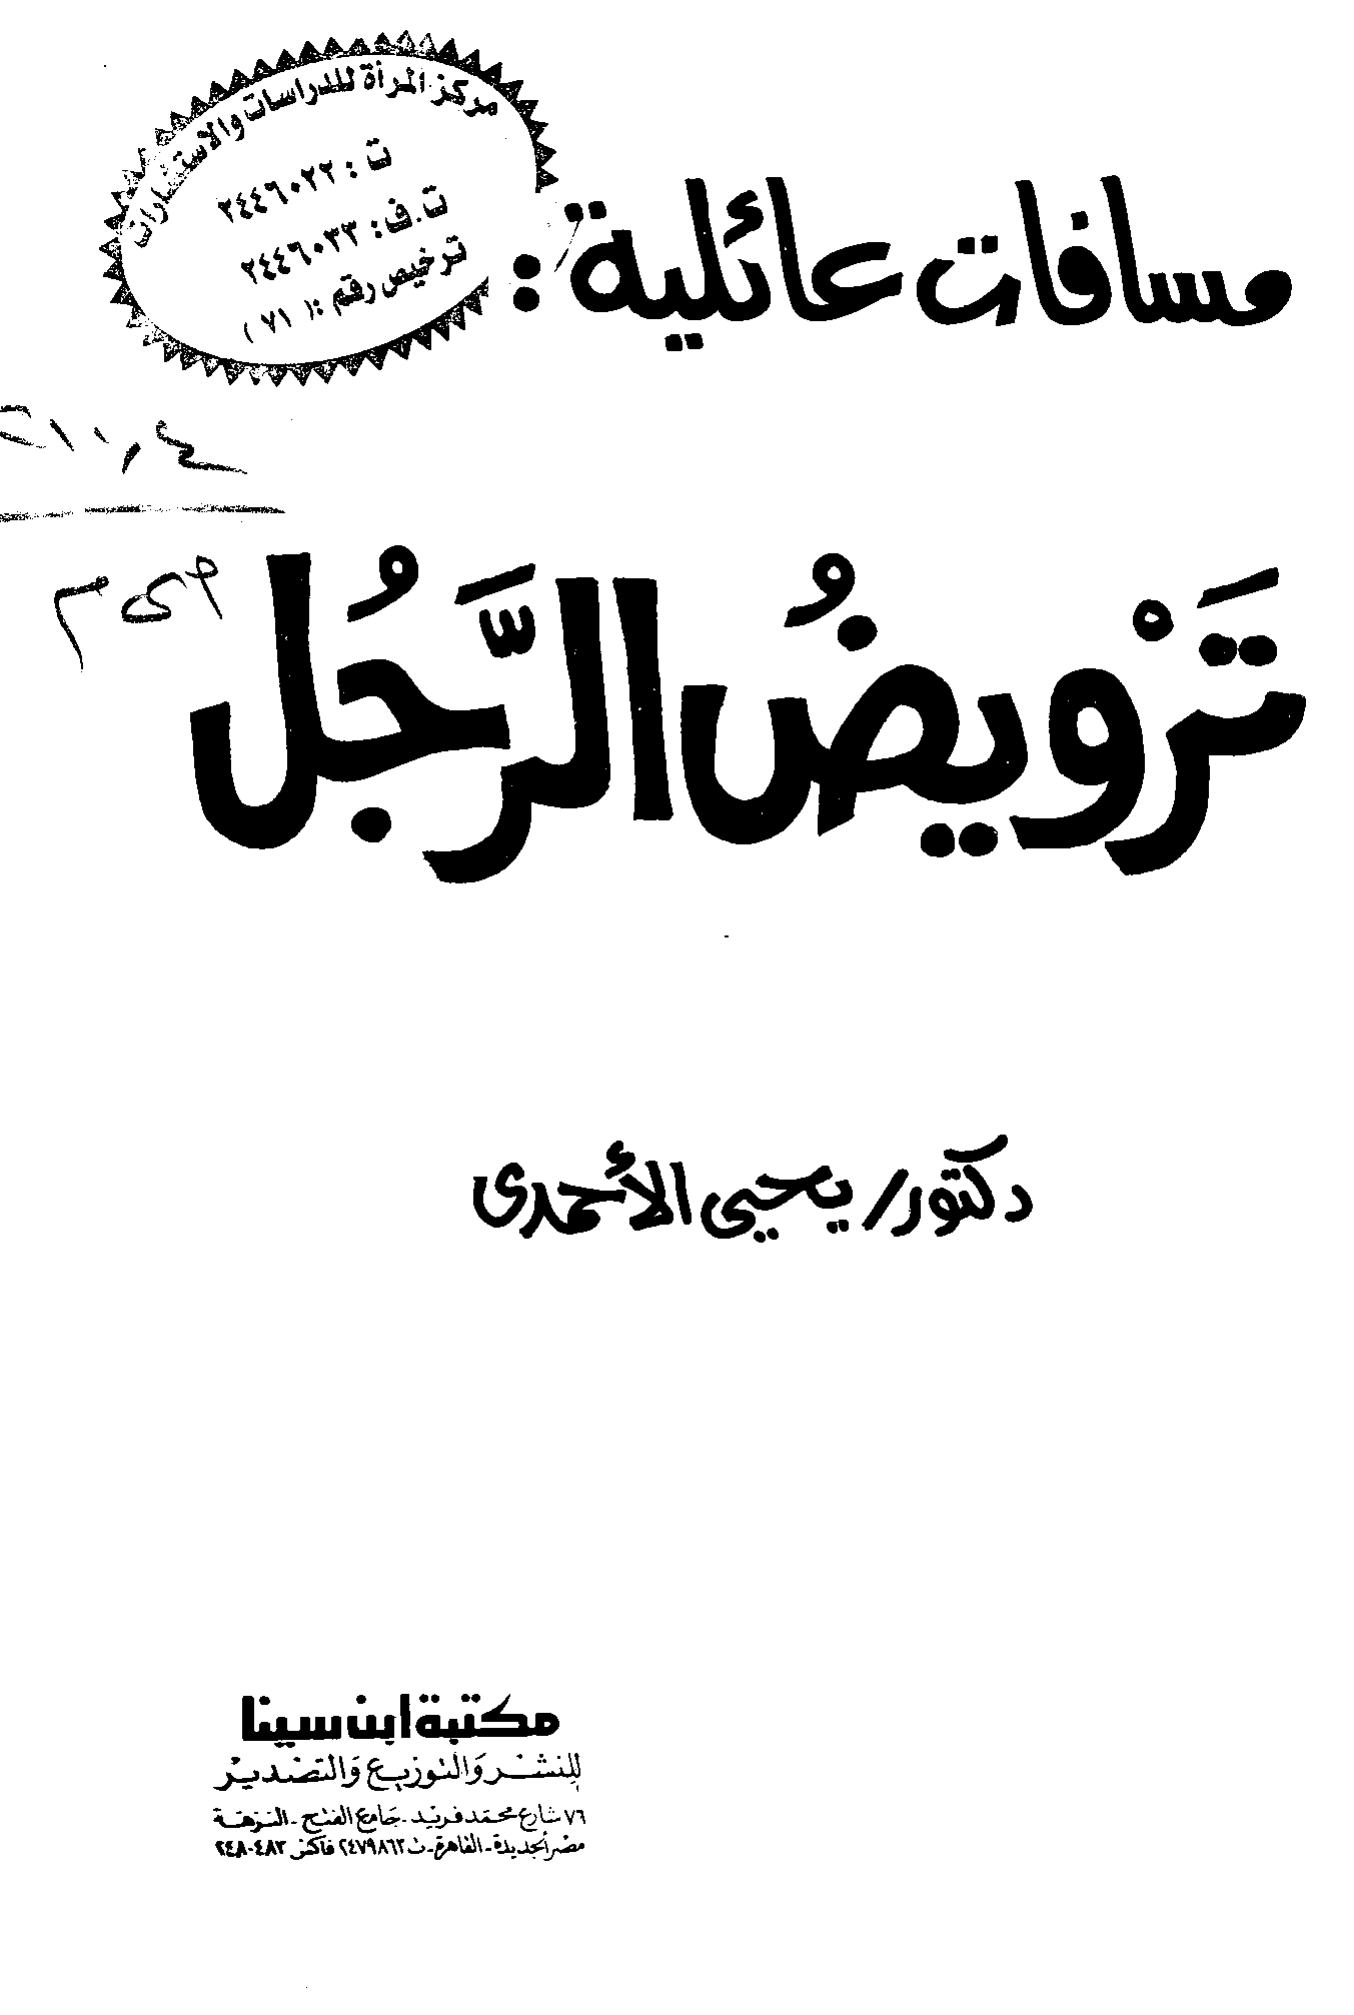 مركز المرأة للدراسات والاستشارات
ت : ٢٤٤٦٠٢٢
ت.ف: ٢٤٤٦٠٣٣
ترخيص رقم :( ٧١ )
مسافات عائلية :
تَرْويضُ الرَّجُل
دكتور/ يحيى الأحمدى
مكتبة ابن سينا
للنشر والتوزيع والتصدير
٧٦ شارع محمد فريد - جامع الفتح - النزهة
مصر الجديدة - القاهرة - ت ٢٤٧٩٨٦٣ فاكس ٢٤٨٠٤٨٣